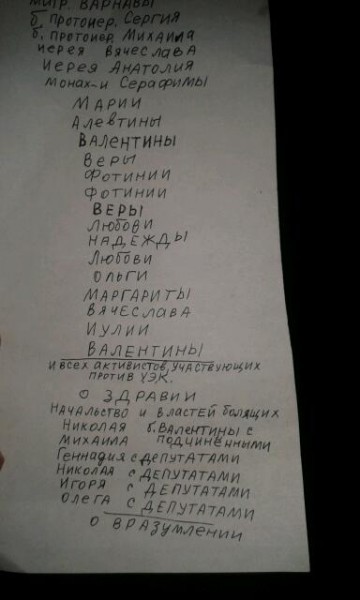 митр. ВАРНАВЫ
б. Протоиер. Сергия
б. протоиер. Михаила
иерея Вячеслава
иерея Анатолия
монах-и Серафимы
Марии
Алевтины
Валентины
Веры
Фотинии
Фотинии
Веры
Любови
Надежды
Любови
Ольги
Маргариты
Вячеслава
Иулии
Валентины
и всех активистов, участвующих
против УЭК.
О ЗДРАВИИ
Начальство и властей болящих
Николая б. Валентины с
Михаила подчинёнными
Геннадия с депутатами
Николая с депутатами
Игоря с депутатами
Олега с депутатами
О вразумлении